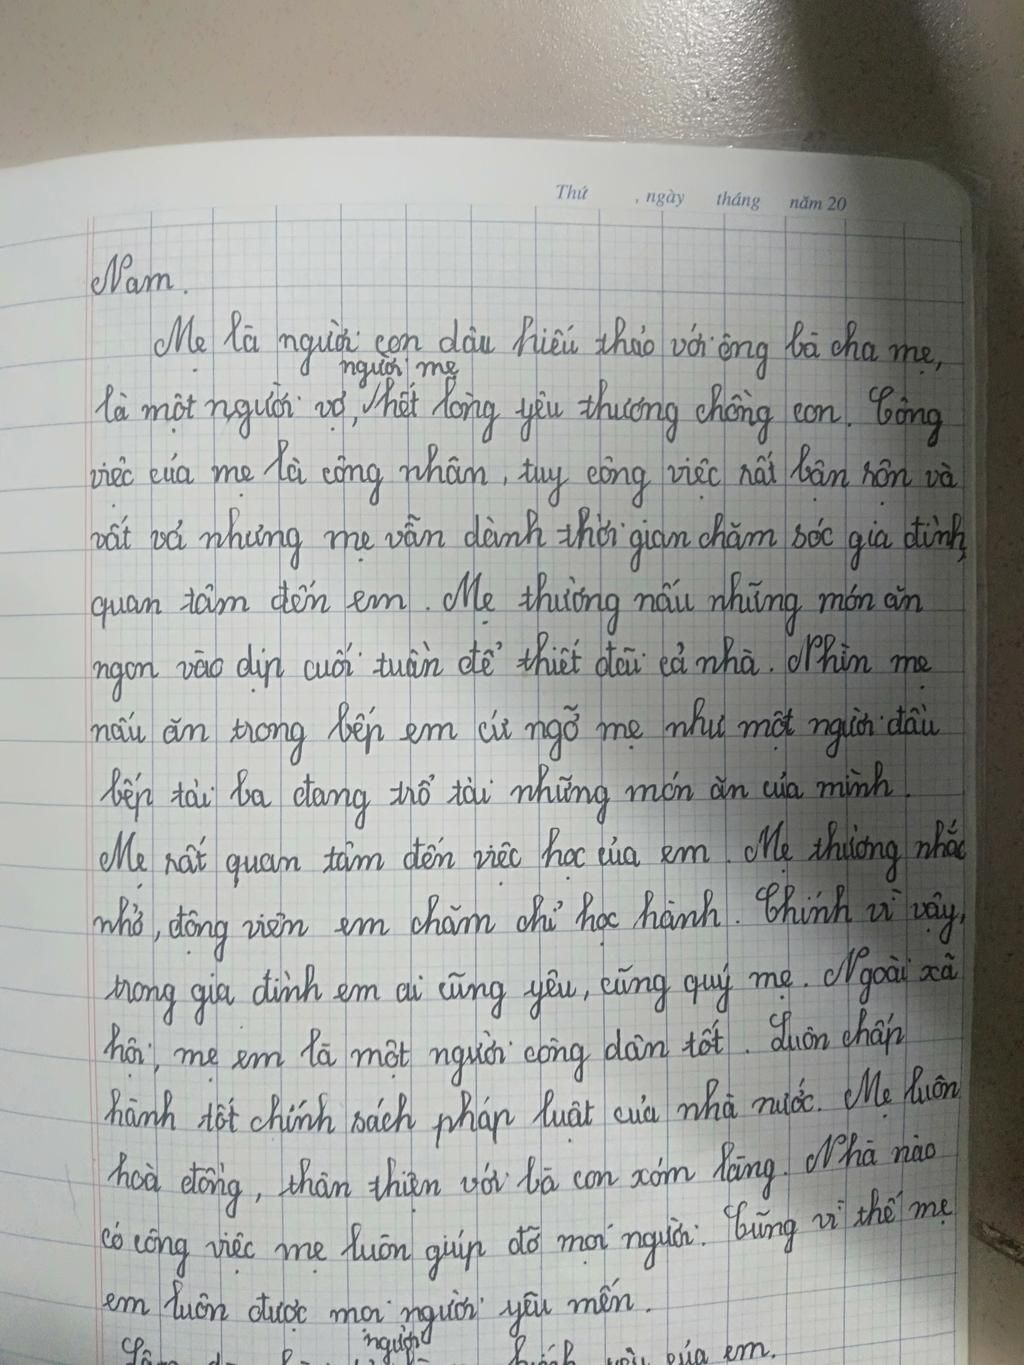 Thứ , ngày tháng năm 20
Nam.
Mẹ là người con dâu hiếu thảo với ông bà cha mẹ,
người mẹ
là một người vợ, hết lòng yêu thương chồng con. Công
việc của mẹ là công nhân, tuy công việc rất bận rộn và
vất vả nhưng mẹ vẫn dành thời gian chăm sóc gia đình,
quan tâm đến em. Mẹ thường nấu những món ăn
ngon vào dịp cuối tuần để thiết đãi cả nhà. Nhìn mẹ
nấu ăn trong bếp em cứ ngỡ mẹ như một người đầu
bếp tài ba đang trổ tài những món ăn của mình.
Mẹ rất quan tâm đến việc học của em. Mẹ thường nhắc
nhở, động viên em chăm chỉ học hành. Chính vì vậy,
trong gia đình em ai cũng yêu, cũng quý mẹ. Ngoài xã
hội, mẹ em là một người công dân tốt. Luôn chấp
hành tốt chính sách pháp luật của nhà nước. Mẹ luôn
hoà đồng, thân thiện với bà con xóm làng. Nhà nào
có công việc mẹ luôn giúp đỡ mọi người. Cũng vì thế mẹ
em luôn được mọi người yêu mến.
người
của em.